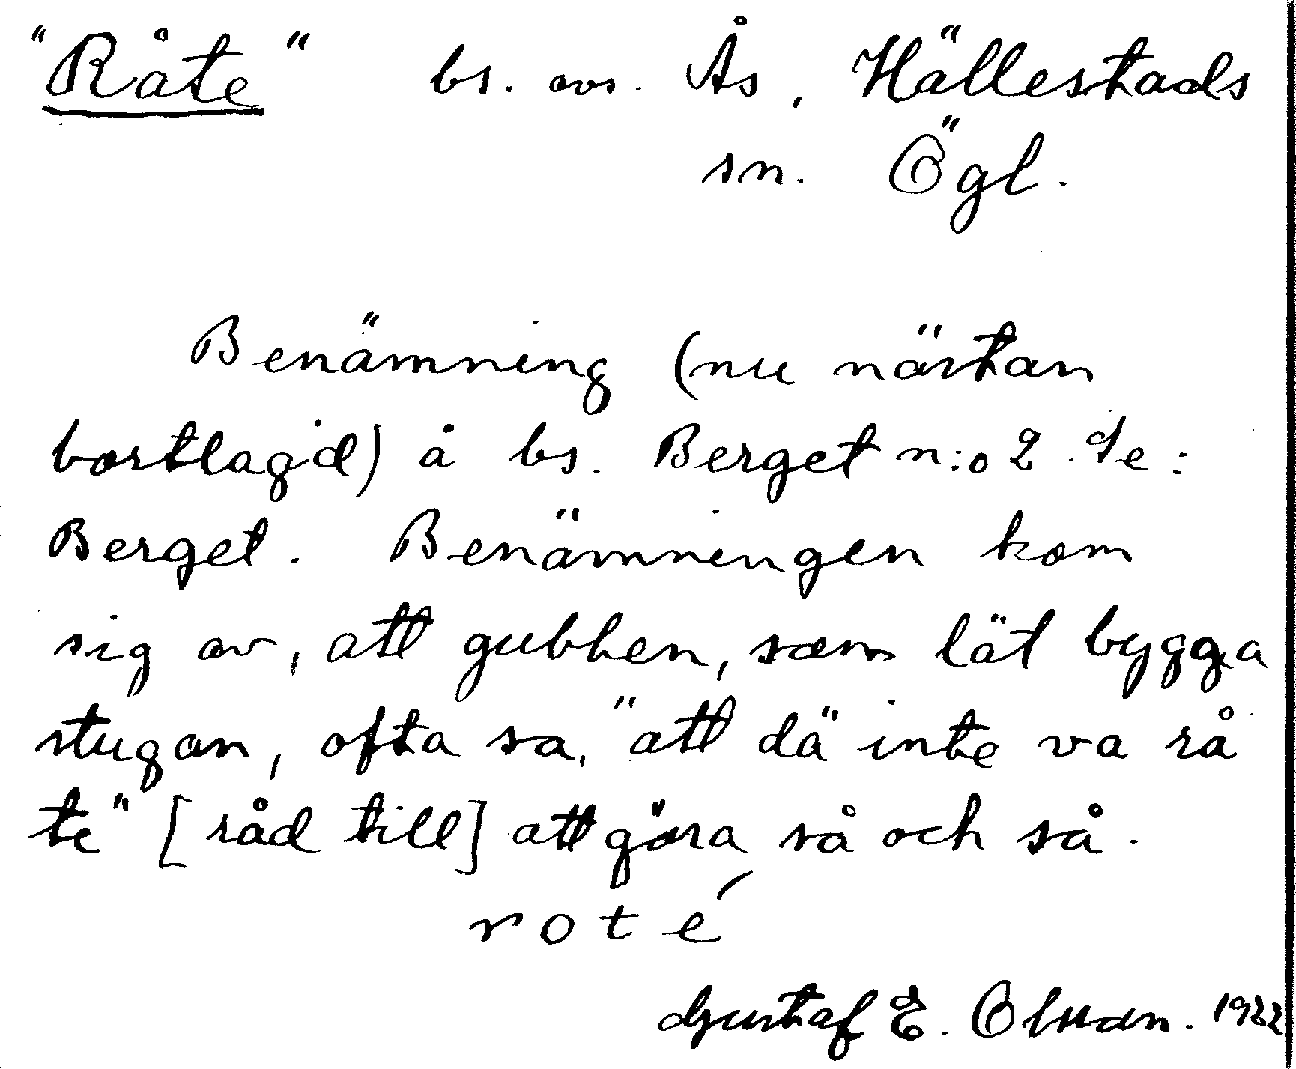 "Råte" bs. avs. Ås, Hällestads
sn. Ögl.
Benämning (nu nästan
bortlagd) å bs. Berget n:o 2. Se:
Berget. Benämningen kom
sig av, att gubben, som lät bygga
stugan, ofta sa, "att dä inte va rå
te" [råd till] att göra så och så.
roté
Gustaf E. Olsson. 1922